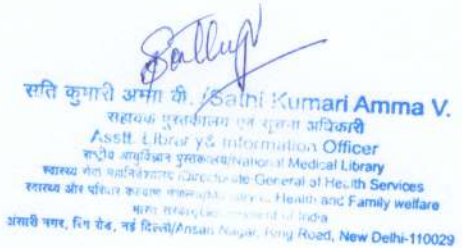 सति कुमारी अम्मा वी. /Sathi Kumari Amma V.
सहायक पुस्तकालय एवं सूचना अधिकारी
Asstt. Library & Information Officer
राष्ट्रीय आयुर्विज्ञान पुस्तकालय/National Medical Library
स्वास्थ्य सेवा महानिदेशालय/Directorate General of Health Services
स्वास्थ्य और परिवार कल्याण मंत्रालय/Ministry of Health and Family welfare
भारत सरकार/Government of India
अंसारी नगर, रिंग रोड, नई दिल्ली/Ansari Nagar, Ring Road, New Delhi-110029